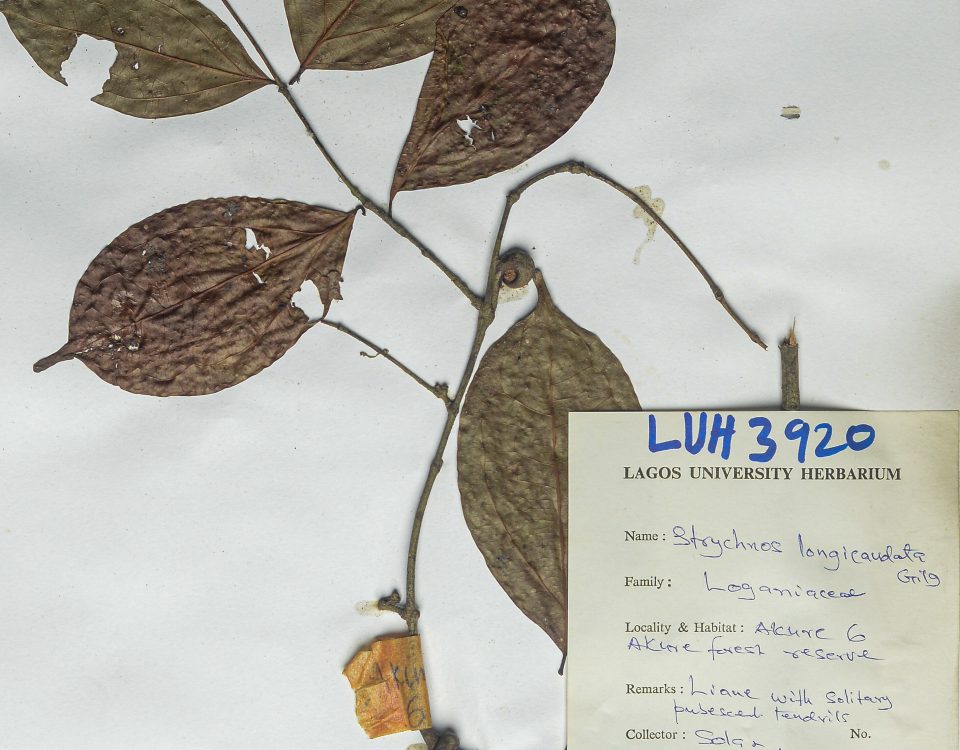 LUH 3920
LAGOS UNIVERSITY HERBARIUM
Name: Strychnos longicaudata
Gilg
Family: Loganiaceae
Locality & Habitat: Akure 6
Akure forest reserve
Remarks: Liane with solitary
pubescent tendrils
Collector: No.
6